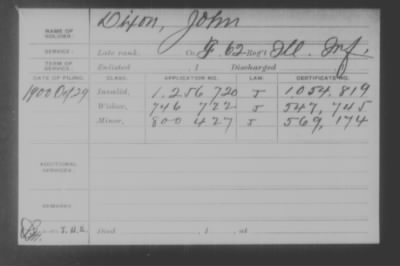 NAME OF SOLDIER: Dixon, John
SERVICE: Late rank, Co. G. 62 Reg't Ill. Inf.
TERM OF SERVICE: Enlisted , 1 Discharged , 1
DATE OF FILING. CLASS. APPLICATION NO. LAW. CERTIFICATE NO.
1900 Oct 29 Invalid, 1.256.720 J 1.054.819
Widow, 746 722 J 547,745
Minor, 800 427 J 569,174
ADDITIONAL SERVICES:
REMARKS:
Died , 1 , at